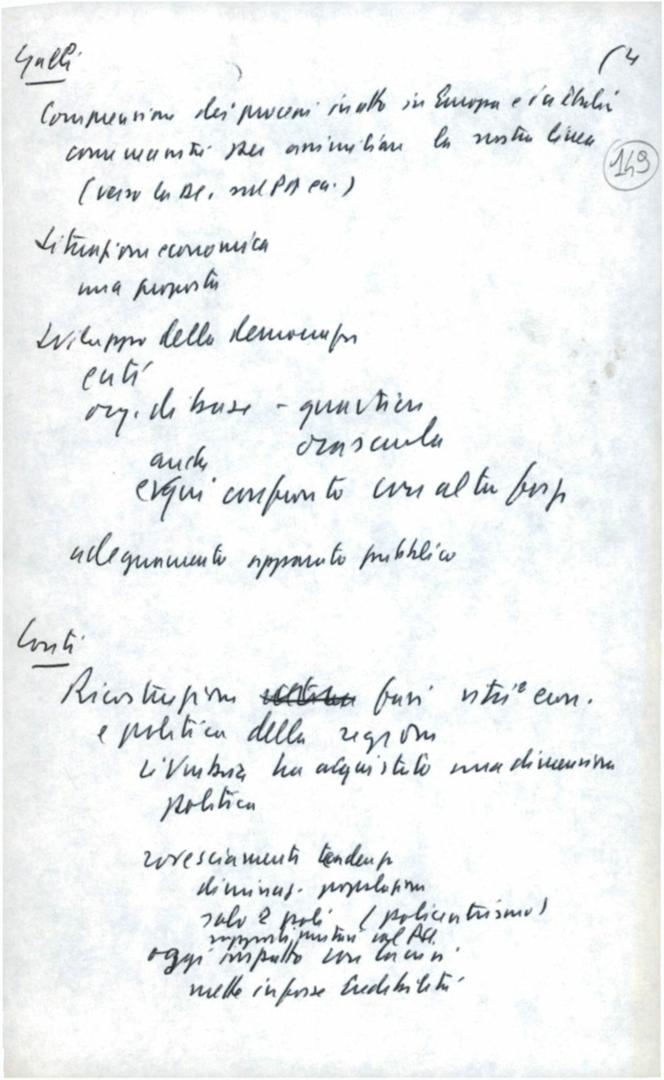 Galli (4
Comprensione dei processi in atto in Europa e in Italia
come necessità per assimilare la nostra linea
(verso la DC. sul PSI ecc.)
149
Situazione economica
una proposta
Sviluppo della democrazia
enti
org. di base - quartiere
anche scuola
confronto con altre forze
adeguamento apparato pubblico
Conti
Ricostruzione fasi econ.
e politica della regione
L'Umbria ha acquistato una dimensione
politica
rovesciamenti tendenza
diminuz. popolazione
solo 2 poli (policentrismo)
rapporti col PCI.
oggi impatto con la crisi
mette in forse credibilità